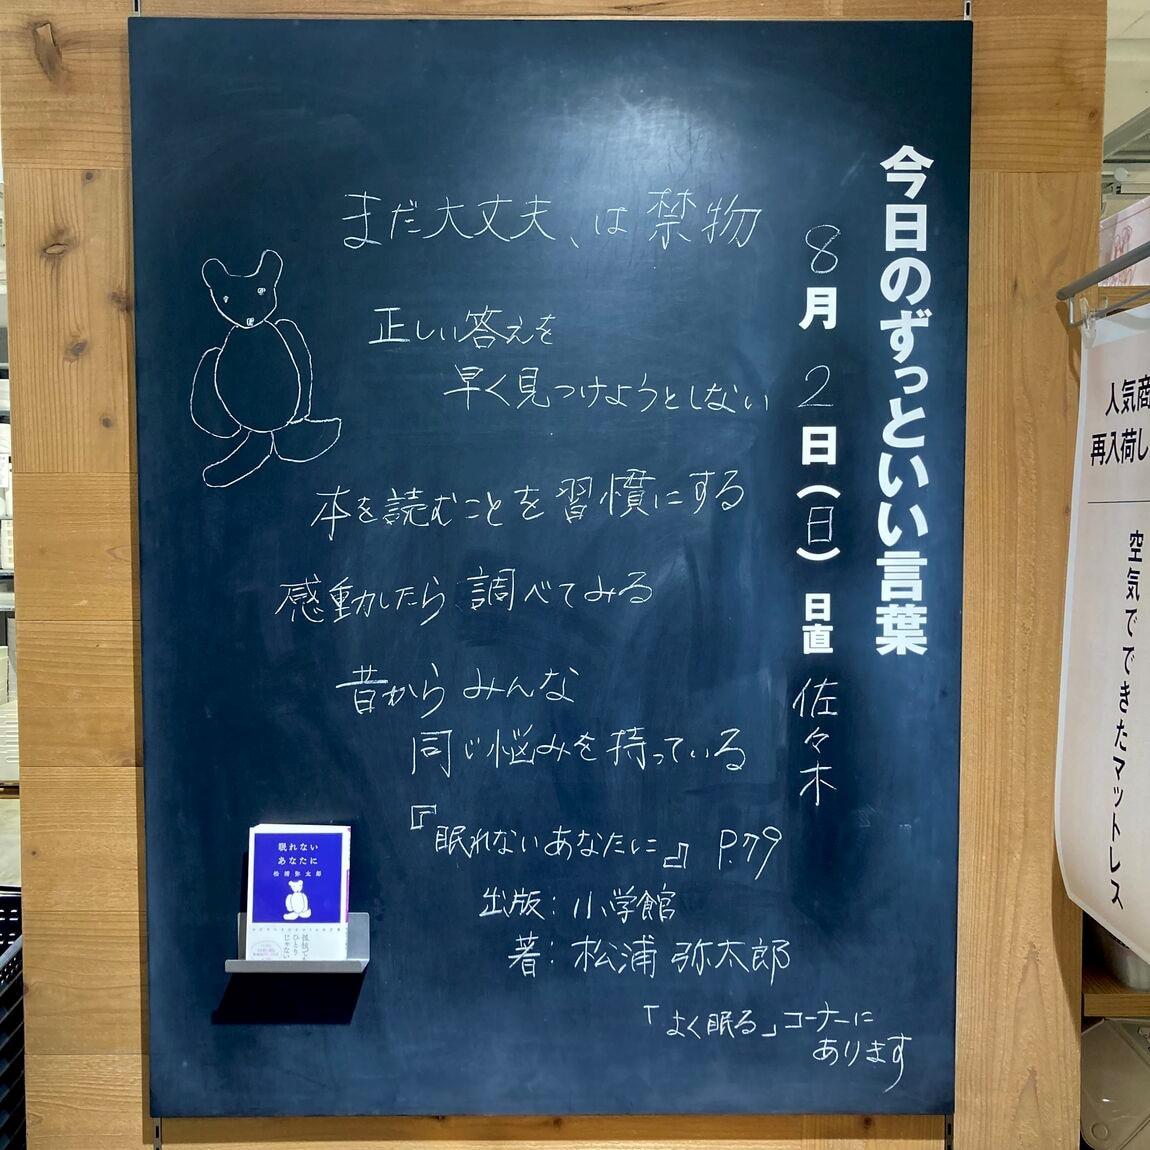 今日のずっといい言葉
8月2日(日) 日直 佐々木
まだ大丈夫、は禁物
正しい答えを
早く見つけようとしない
本を読むことを習慣にする
感動したら調べてみる
昔からみんな
同じ悩みを持っている
『眠れないあなたに』 P.79
出版：小学館
著：松浦弥太郎
「よく眠る」コーナーに
あります
眠れない
あなたに
松浦弥太郎
孤独でも
ひとり
じゃない
人気商
再入荷し
空気でできたマットレス